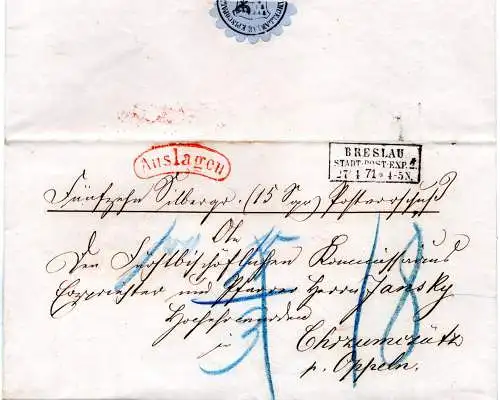 Auslagen
BRESLAU
STADT-POST-EXP. 2
27 1 71 4-5N.
Fünfzehn Silbergr. (15 Sgr) Postvorschuß
An
Den Fürstbischöflichen Kommissarius
Erzpriester und Pfarrer Herrn Jansky
Hochehrwürden
in
Chrzumczütz
p. Oppeln.
18